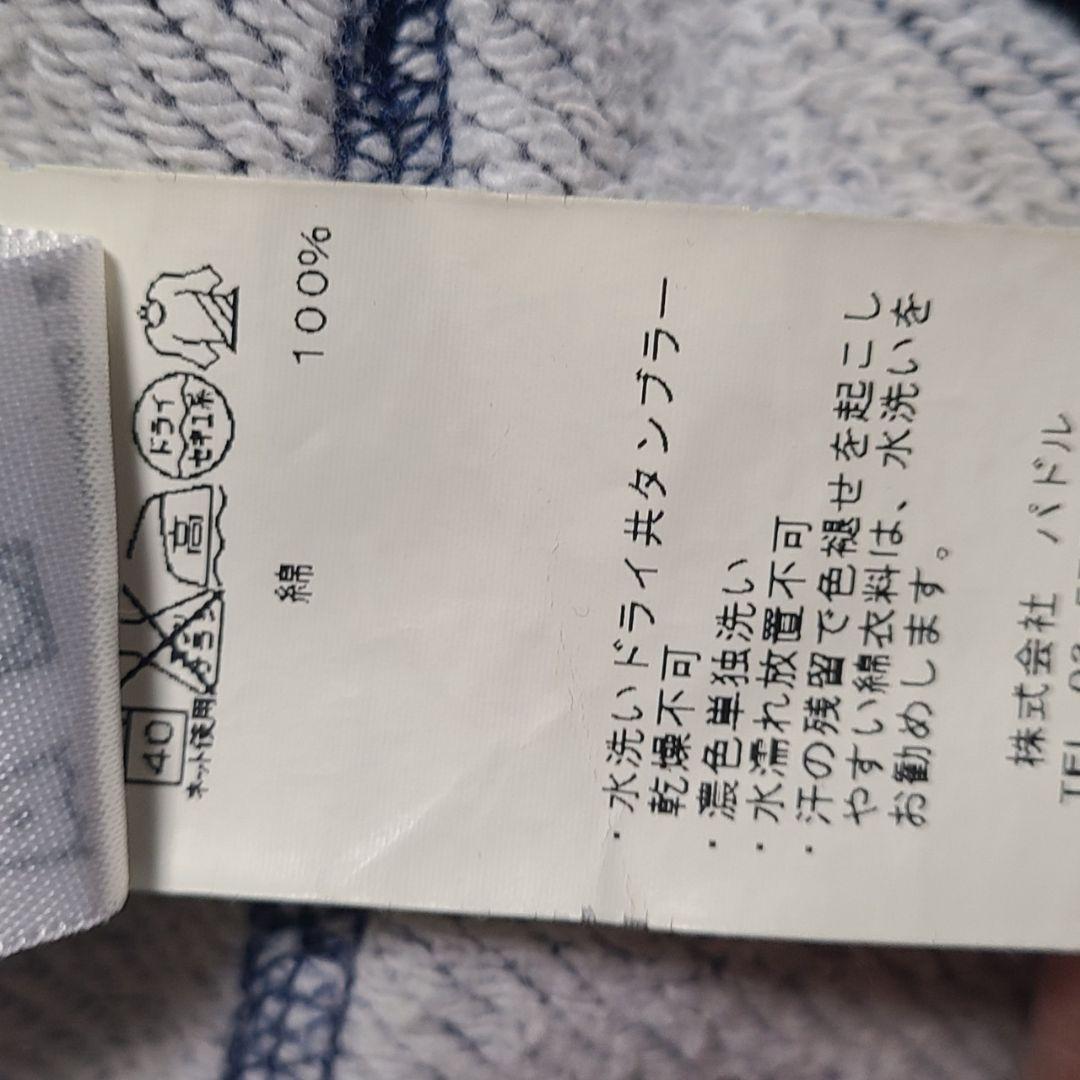 40
ネット使用
エンソサラシ
高
ドライ
セキユ系
綿 100%
・水洗いドライ共タンブラー
乾燥不可
・濃色単独洗い
・水濡れ放置不可
・汗の残留で色褪せを起こし
やすい綿衣料は、水洗いを
お勧めします。
株式会社 パドル
TEL 03